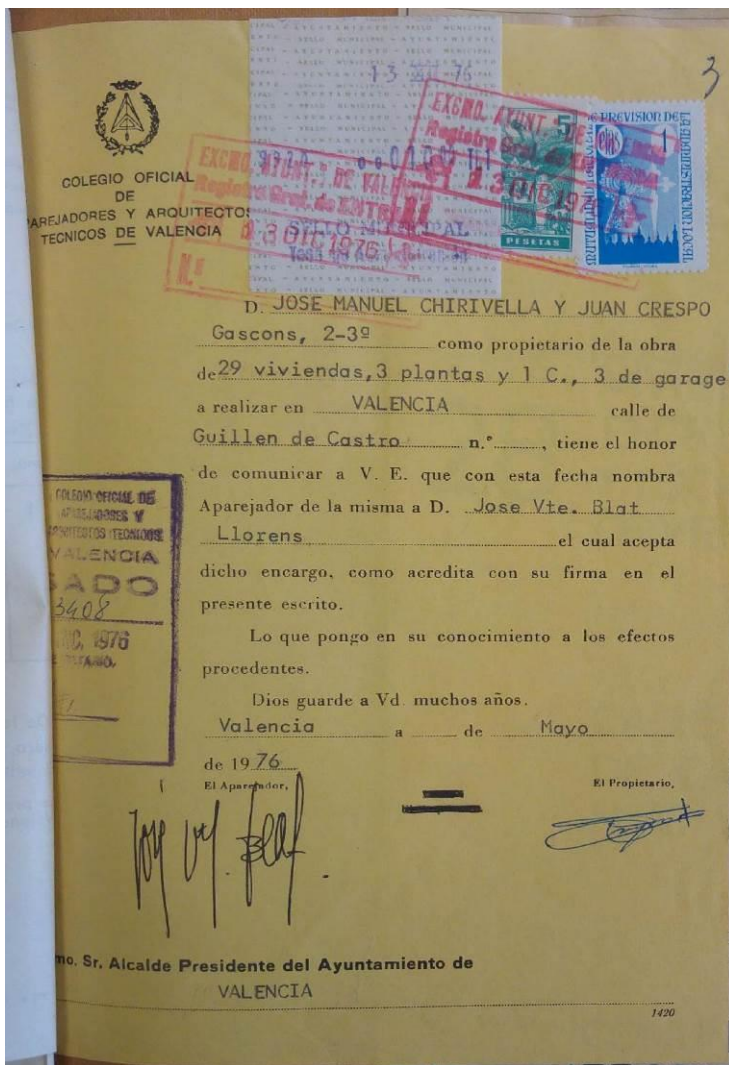 3
13 76
EXCMO. AYUNT.º DE
Registro Gral. de
3 DIC 1976
5
PESETAS
PREVISION DE
1
COLEGIO OFICIAL
DE
APAREJADORES Y ARQUITECTOS
TECNICOS DE VALENCIA
EXCMO. AYUNT.º DE VAL
Registro Gral. de ENTR
3 DIC 1976
N.º
SELLO MUNICIPAL
D. JOSE MANUEL CHIRIVELLA Y JUAN CRESPO
Gascons, 2-3º como propietario de la obra
de 29 viviendas, 3 plantas y 1 C., 3 de garage
a realizar en VALENCIA calle de
Guillen de Castro n.º, tiene el honor
de comunicar a V. E. que con esta fecha nombra
Aparejador de la misma a D. Jose Vte. Blat
Llorens el cual acepta
dicho encargo, como acredita con su firma en el
presente escrito.
Lo que pongo en su conocimiento a los efectos
procedentes.
Dios guarde a Vd. muchos años.
Valencia a de Mayo
de 1976
El Aparejador,
El Propietario,
COLEGIO OFICIAL DE
APAREJADORES Y
ARQUITECTOS TECNICOS
VALENCIA
SADO
3408
DIC. 1976
mo. Sr. Alcalde Presidente del Ayuntamiento de
VALENCIA
1420